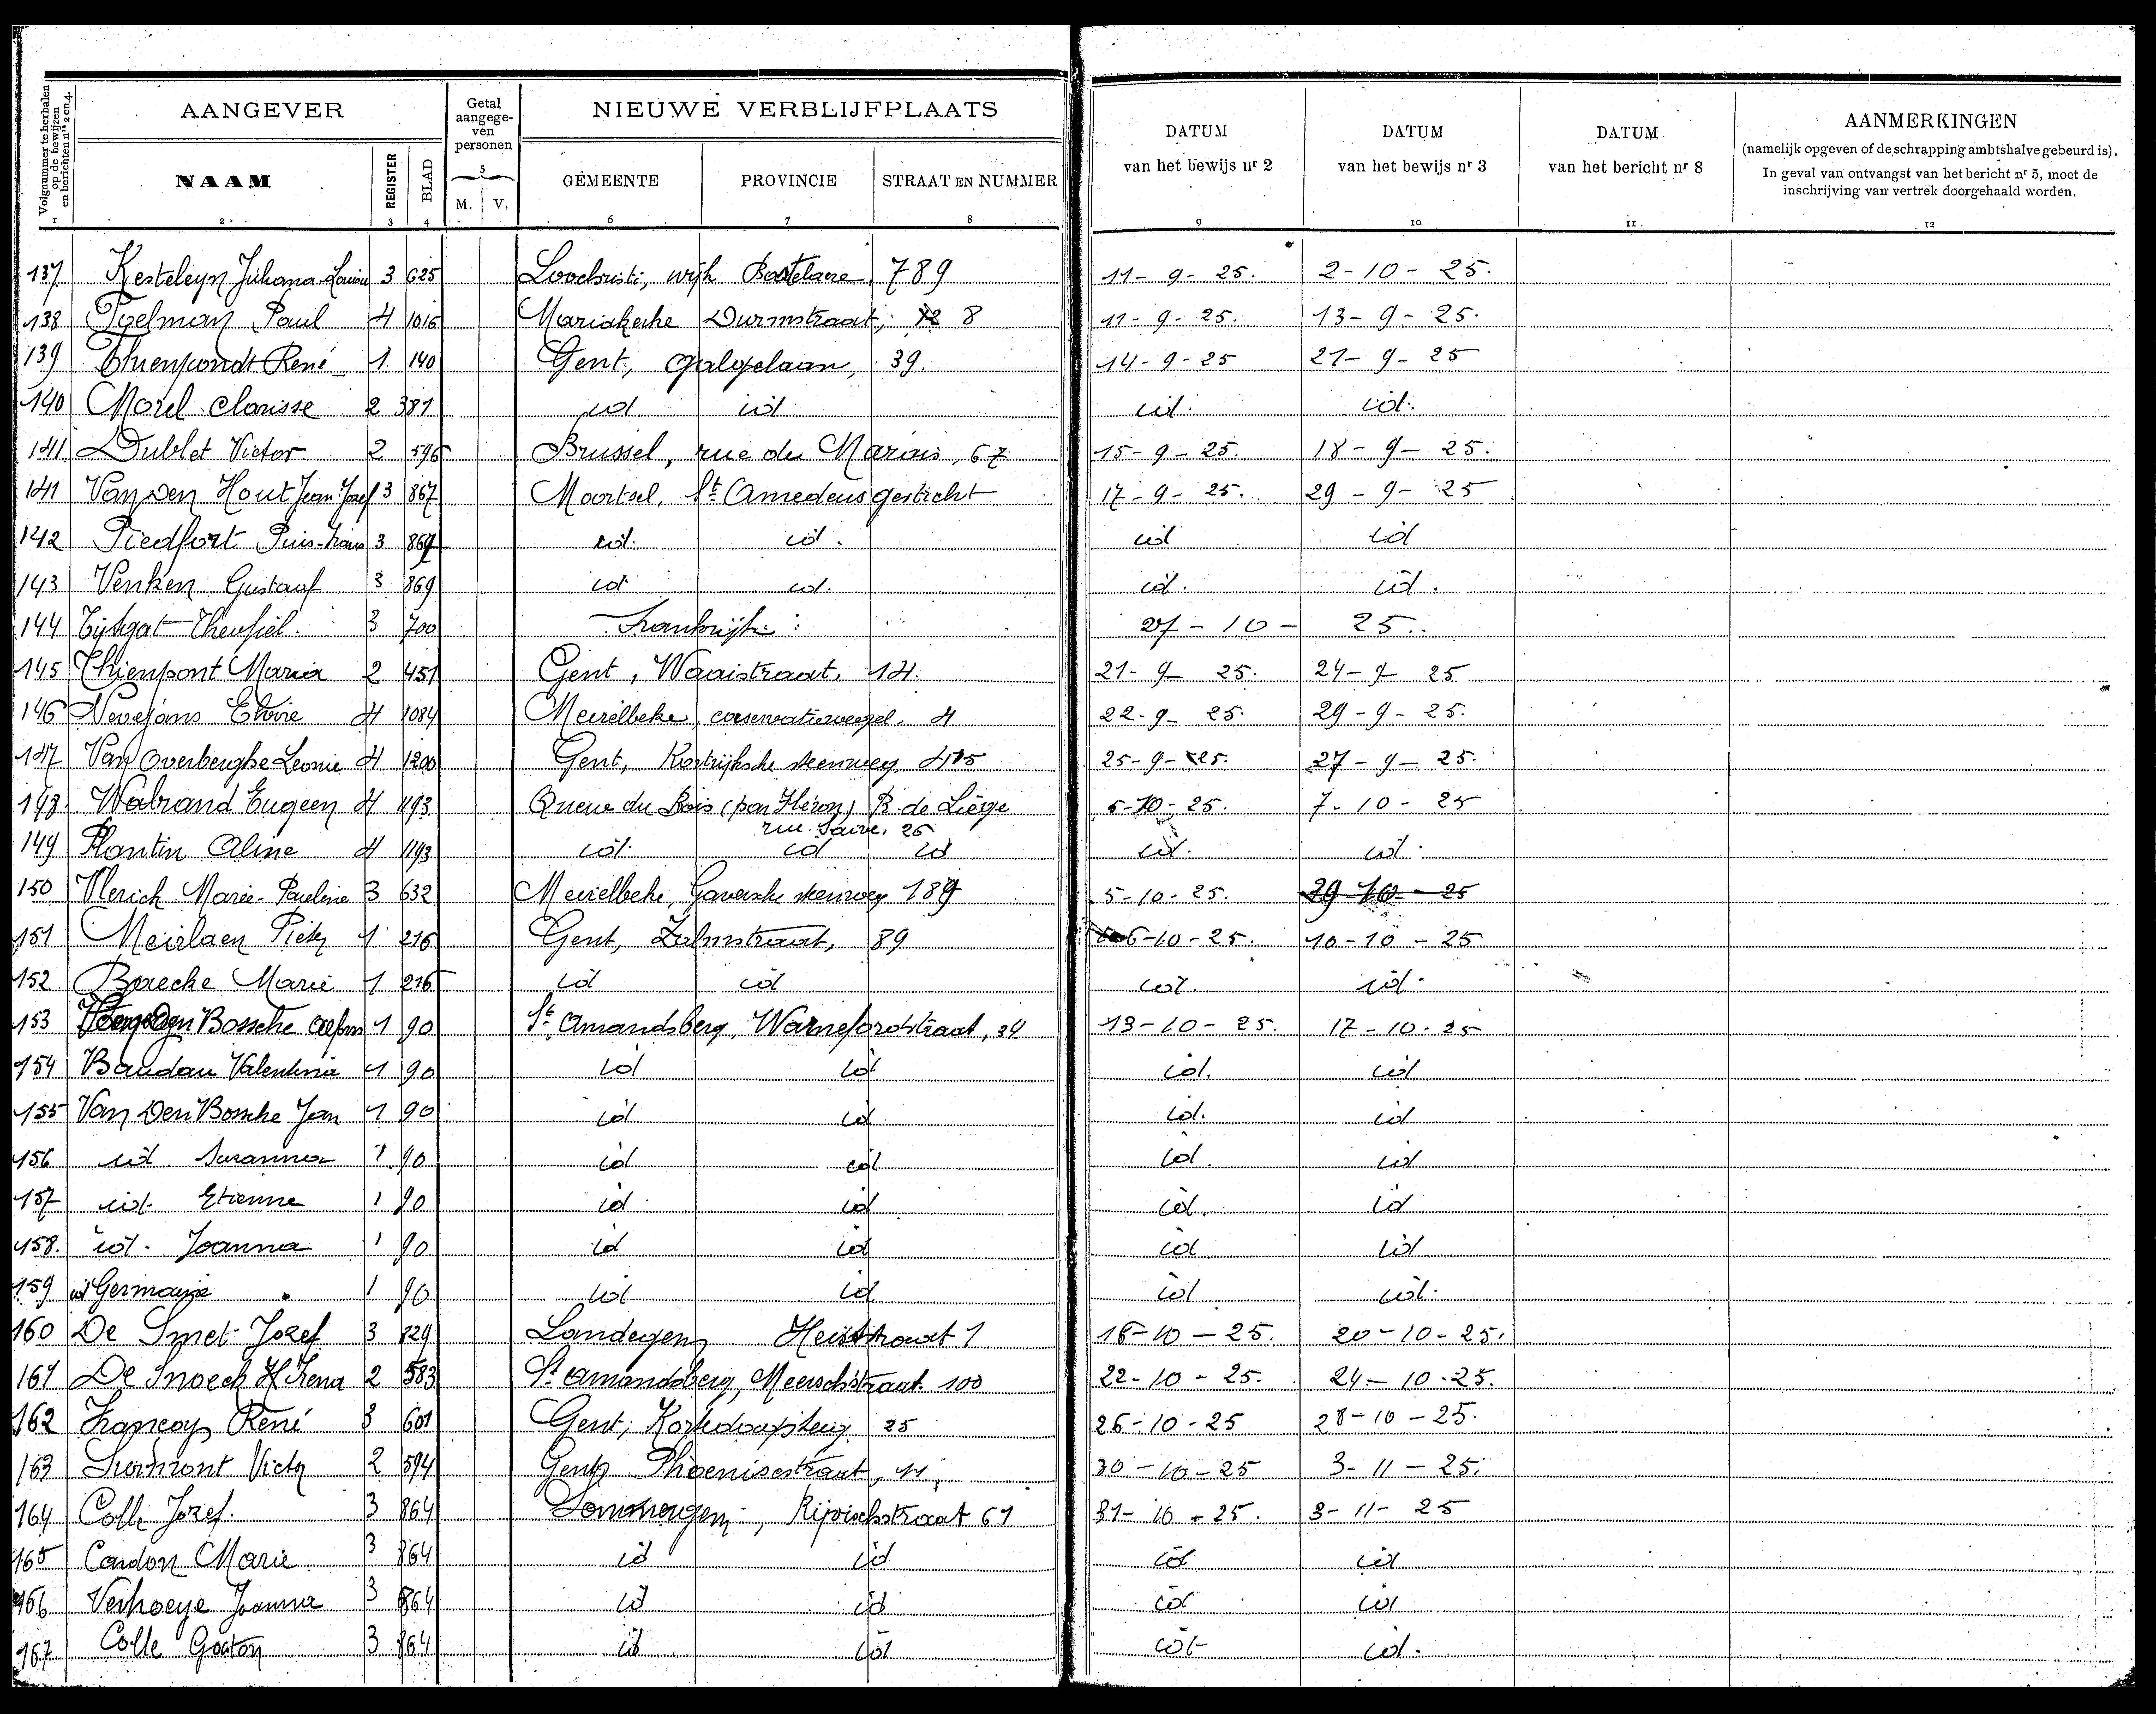 Volgnummer te herhalen op de bewijzen en berichten nrs 2 en 4.
AANGEVER
Getal aangege-ven personen
NIEUWE VERBLIJFPLAATS
DATUM van het bewijs nr 2
DATUM van het bewijs nr 3
DATUM van het bericht nr 8
AANMERKINGEN
(namelijk opgeven of de schrapping ambtshalve gebeurd is).
In geval van ontvangst van het bericht nr 5, moet de inschrijving van vertrek doorgehaald worden.
NAAM REGISTER BLAD 5 M. V. GEMEENTE PROVINCIE STRAAT EN NUMMER
1 2 3 4 6 7 8 9 10 11 12
137 Kesteleyn Juliana-Louisa 3 625 Loochristi, wijk 789 11-9-25. 2-10-25.
138 Poelman Paul 4 1016 Mariakerke Durmstraat, 8 11-9-25. 13-9-25.
139 Thienpondt René 1 140 Gent, galgelaan, 39. 14-9-25 21-9-25
140 Morel Clarisse 2 381 id id. id. id.
141 Dublet Victor 2 596 Brussel, rue du Marais, 67 15-9-25. 18-9-25.
141 Van Den Hout Jean-Jozef 3 867 Mortsel, St Amedeus gesticht 17-9-25. 29-9-25
142 Piedfort 3 869 id. id. id id
143 Venken Gustaaf 3 869 id id. id. id.
144 Tijtgat Theofiel. 3 700 Frankrijk 27-10-25.
145 Thienpont Maria 2 451 Gent, Waaistraat, 14. 21-9-25. 24-9-25
146 Nevejans 4 1084 Meirelbeke, 4 22-9-25. 29-9-25.
147 Van Overberghe Leonie 4 1200 Gent, Kortrijksche steenweg 415 25-9-25. 27-9-25.
148 Walrand Eugeen 4 1193 Queue du Bois (par Héron) P. de Liège 5-10-25. 7-10-25
rue 26
149 Plantin Aline 4 1193 id. id id id. id.
150 Vlerick Marie-Pauline 3 632 Meirelbeke, Gaversche steenweg 189 5-10-25. 29-10-25
151 Meirlaen Pieter 1 216 Gent, Zalmstraat, 89 6-10-25. 10-10-25
152 Baecke Marie 1 216 id id id. id.
153 Van Den Bossche Alfons 1 90 St Amandsberg, Warnefordstraat, 34 13-10-25. 17-10-25
154 Baudau Valentina 1 90 id id id. id
155 Van Den Bossche Jan 1 90 id id. id. id
156 id. Suzanna 1 90 id id id. id
157 id. Etienne 1 90 id. id id. id
158. id. Joanna 1 90 id id id id
159 id Germaine 1 90 id id id id.
160 De Smet Jozef 3 829 Landegem Heistraat 1 16-10-25. 20-10-25.
161 De Snoeck Irena 2 583 St Amandsberg, Meerschstraat 100 22-10-25. 24-10-25.
162 Françoys René 3 601 Gent, 25 26-10-25 28-10-25.
163 Surmont Victor 2 594 Gent, Phoenixstraat, 11, 30-10-25 3-11-25.
164 Colle Jozef. 3 864 Sommergem, Rijvischstraat 61 31-10-25. 3-11-25
165 Cardon Marie 3 864 id id id id
166 Verhoeye Joanna 3 864 id id id id
167 Colle Gaston 3 864 id id id id.